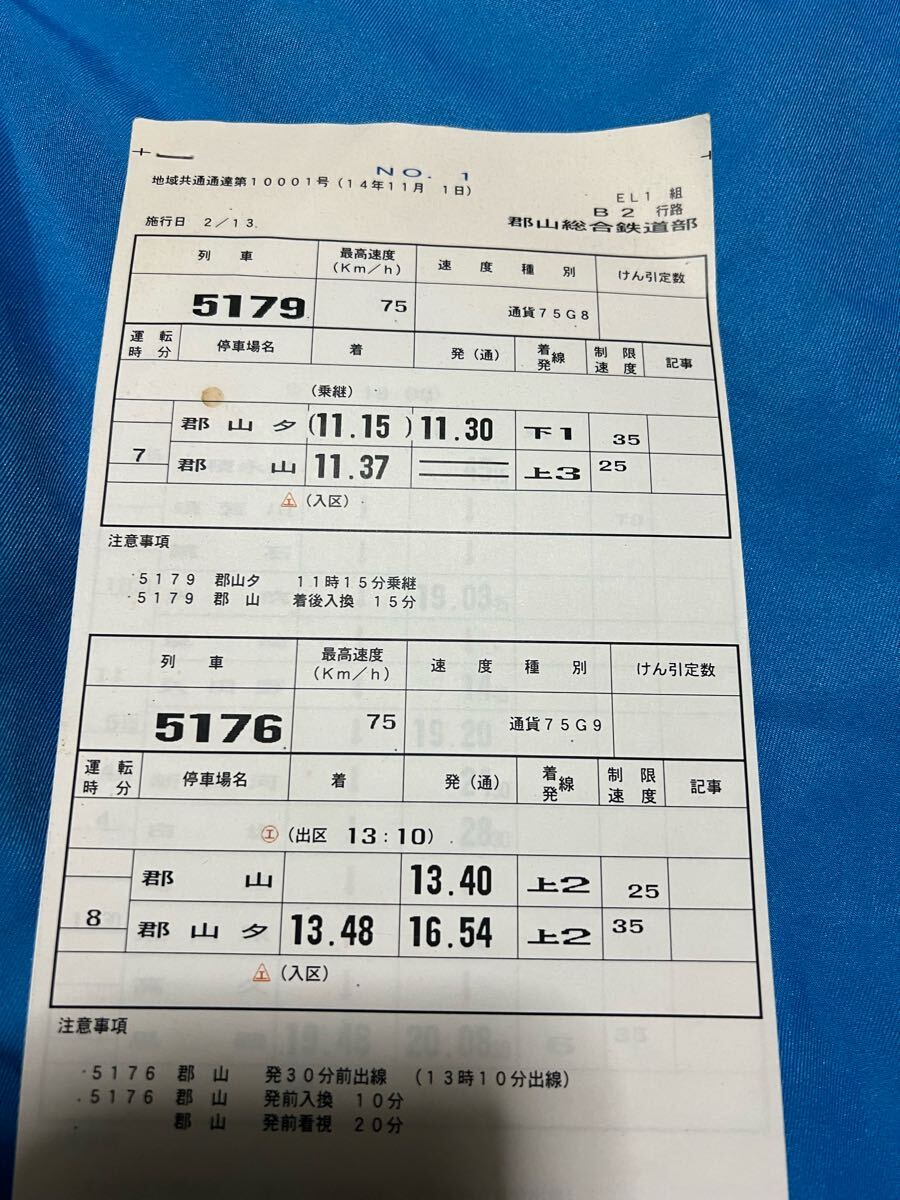 NO. 1
地域共通通達第10001号(14年11月 1日)
EL1 組
B2 行路
施行日 2/13.
郡山総合鉄道部
列 車 最高速度(Km/h) 速度種別 けん引定数
5179 75 通貨75G8
運転時分 停車場名 着 発(通) 着発線 制限速度 記事
(乗継)
郡山タ (11.15) 11.30 下1 35
7
郡山 11.37 上3 25
エ (入区)
注意事項
5179 郡山タ 11時15分乗継
5179 郡 山 着後入換 15分
列 車 最高速度(Km/h) 速度種別 けん引定数
5176 75 通貨75G9
運転時分 停車場名 着 発(通) 着発線 制限速度 記事
エ (出区 13:10)
郡山 13.40 上2 25
8
郡山タ 13.48 16.54 上2 35
エ (入区)
注意事項
5176 郡 山 発30分前出線 (13時10分出線)
5176 郡 山 発前入換 10分
郡 山 発前看視 20分